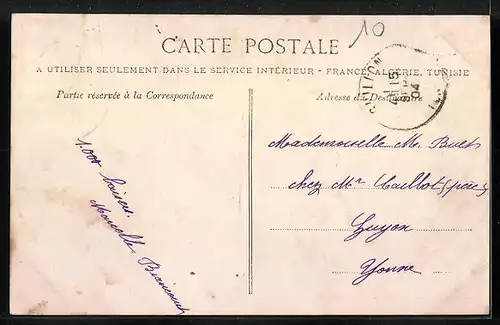 10
CARTE POSTALE
A UTILISER SEULEMENT DANS LE SERVICE INTÉRIEUR - FRANCE, ALGÉRIE, TUNISIE
Partie réservée à la Correspondance
Adresse du Destinataire
15
04
1.000 baisers
Marcelle
Mademoiselle M.
chez Mr Caillot (père)
Yonne